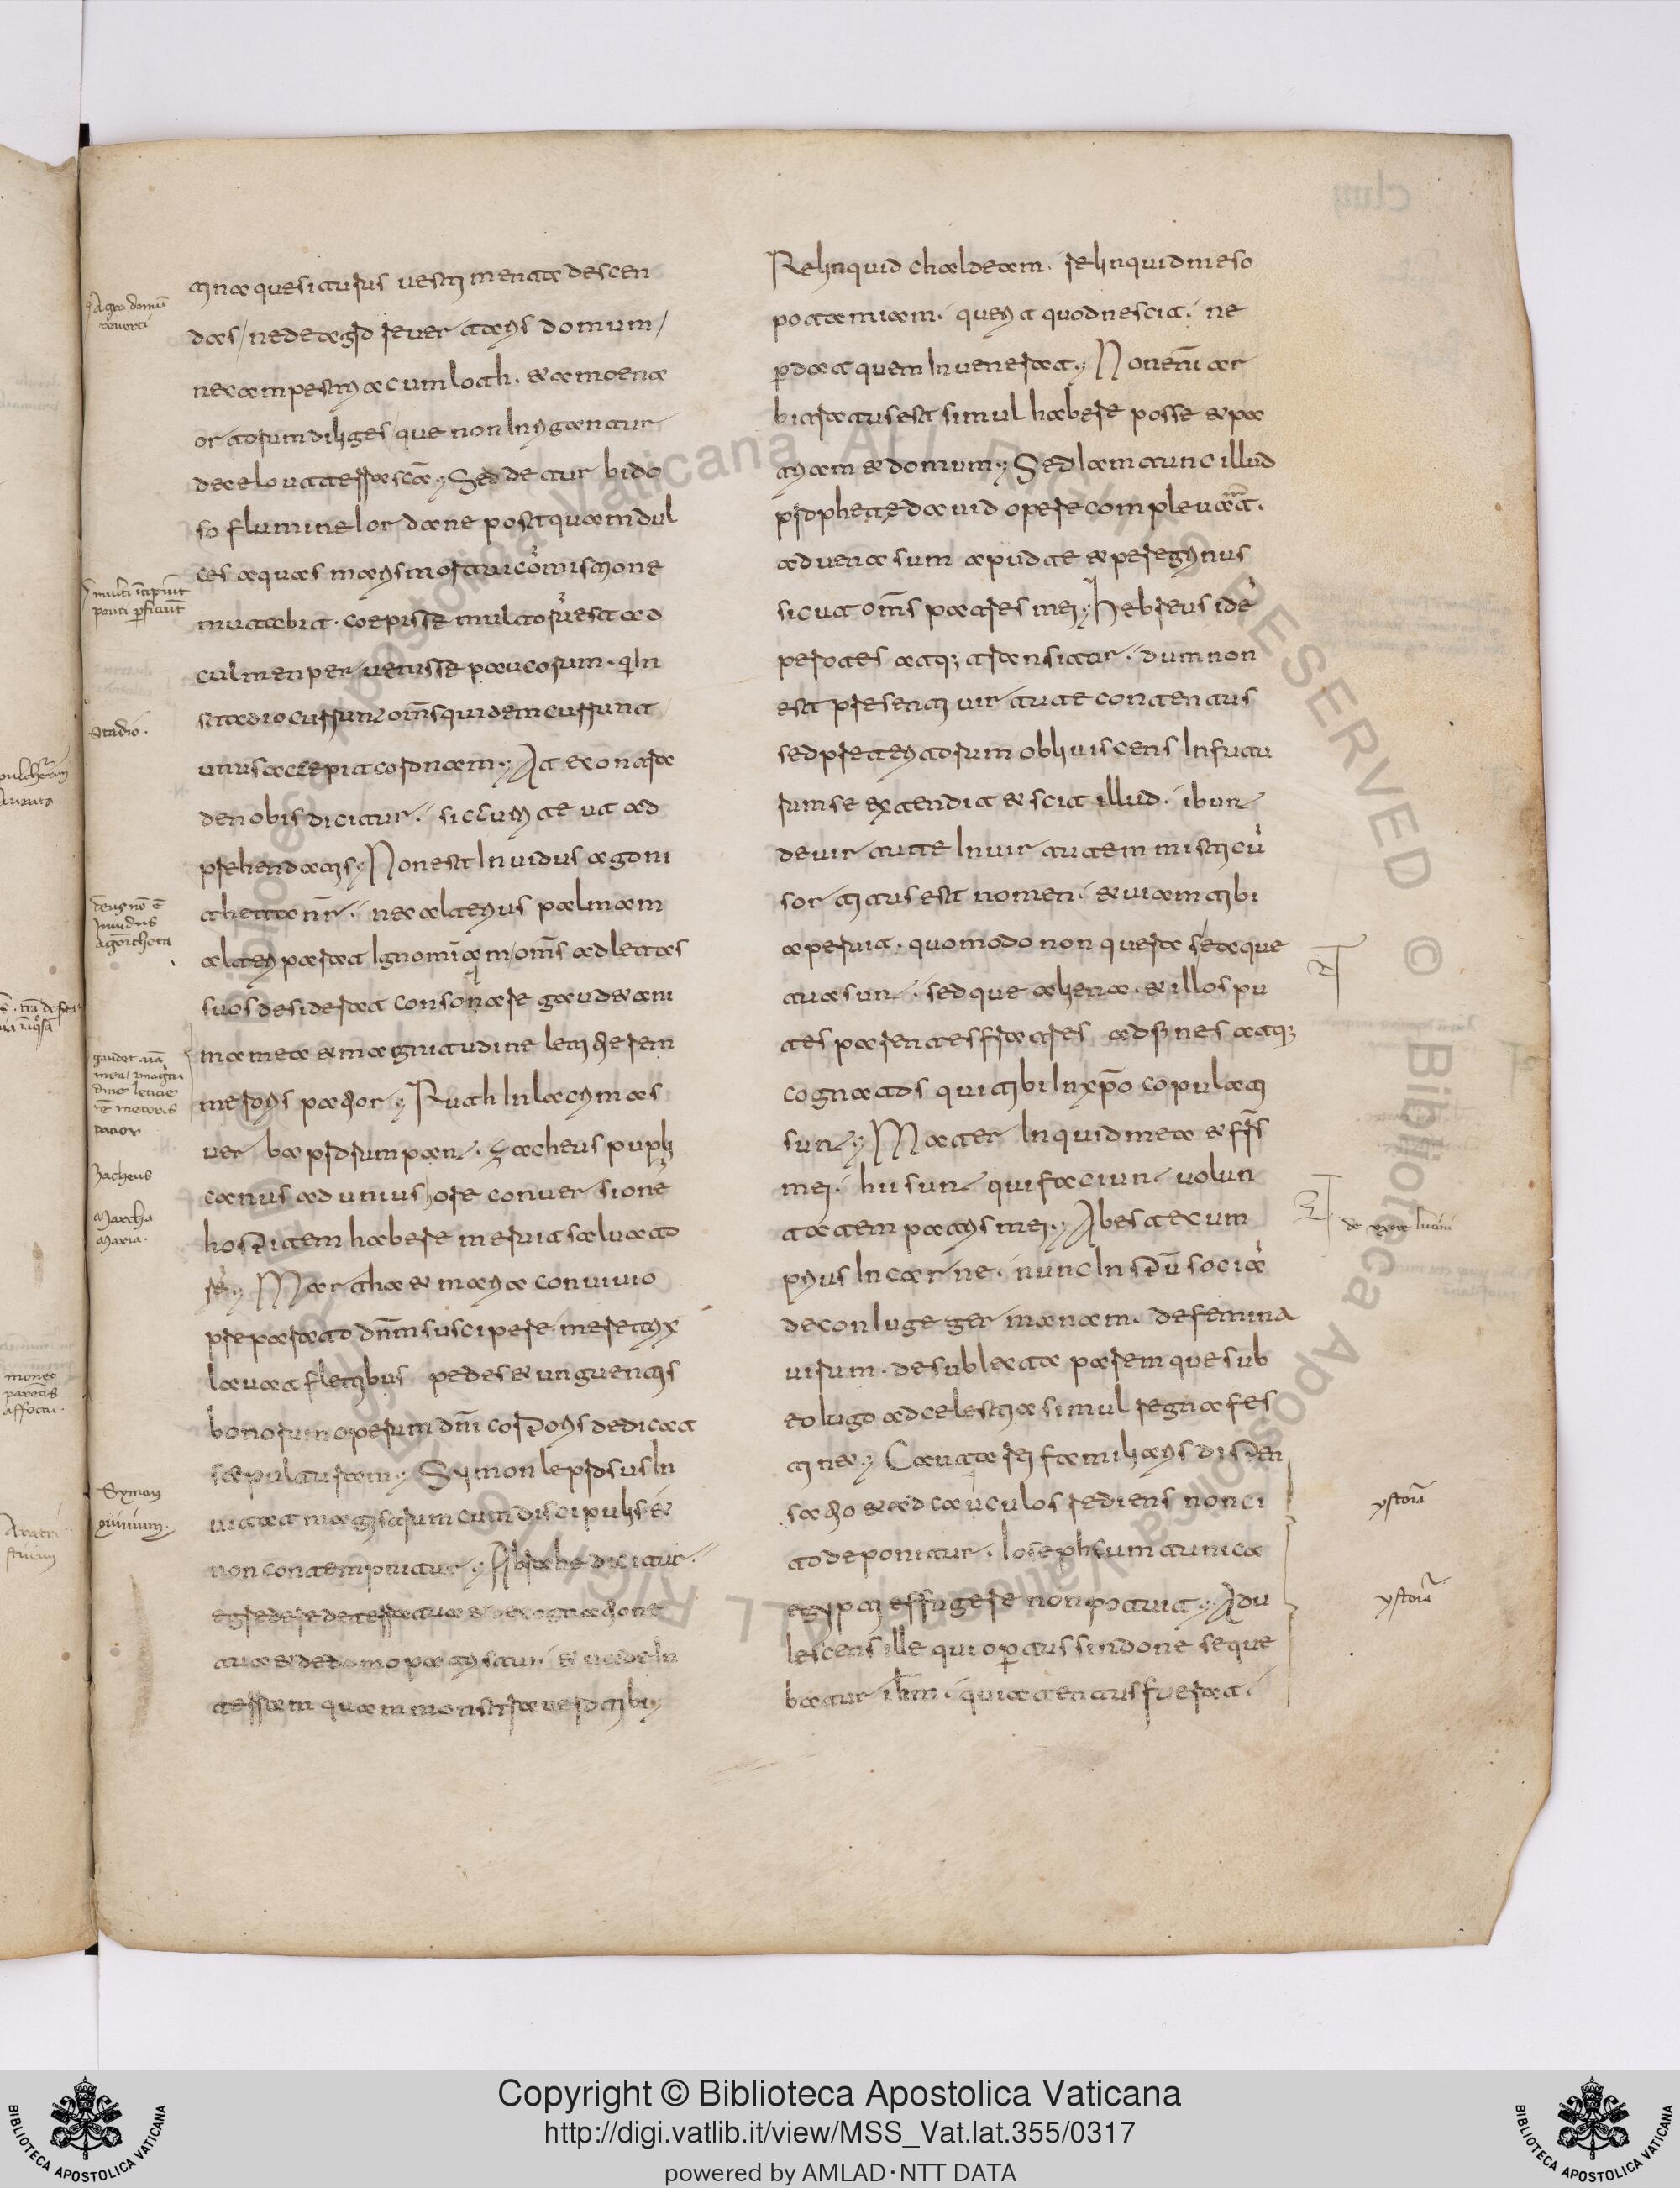 tina quesiturus vestimenta descen
das / ne de agro reverteris domum /
ne campestria cum loth. & amoena
ortorum diliges que non Inrigantur
de celo ut terra scā. Sed de turbido
so flumine Iordane postquam dul
ces aquas maris mortui cōmistione
mutabit. coepisse multorū est ad
culmen pervenisse paucorum. qui In
stadio currunt omṡ quidem currunt
unus accepit coronam. At econtra
de nobis dicitur. sic currite ut ad
prehendatis. Non est Invidus agoni
theta nr̄. nec alterius palmam
alteri parat Ignominiam / omṡ adletas
suos desiderat consonare gaudet ani
ma mea & magnitudine letitie rem
meroris patior. Ruth In lacrimas
verba prorumpant. Zacheus publi
canus ad unius hore conversionē
hospitem habere meruit salvato
rē. Martha & maria convivio
preparato dn̄m suscipere. meretrix
lavat fletibus pedes & unguentis
bonorum operum dn̄i corporis dedicat
sepulturam. Symon leprosus In
vitat magistrum cum discipulis &
non contempnitur. Abrahe dicitur.
egredere de terra tua & de cognatione
tua & de domo patris tui. & vade In
terram quam monstravero tibi
Relinquid chaldeam. relinquid meso
potamiam. querit quod nescit. ne
perdat quem Invenerat. Non enī ar
bitratus est simul habere posse & pa
triam & domum. Sed Iam tunc illud
prophete david opere complevit.
advena sum apud te & peregrinus
sicut omṡ patres mei. hebreus idē
perates atq; transitur. dum non
est presenti virtute contentus
sed preteritorum obliviscens In futu
rum se extendit & scit illud. ibunt
de virtute In virtutem misticū
sortitus est nomen. & viam tibi
aperuit. quomodo non quera se & que
tua sunt. sed que aliena. & illos pu
tes parentes fratres adfines atq;
cognatos qui tibi In xp̄o copulati
sunt. Mater Inquid mea & frs̄
mei. hii sunt qui faciunt volun
tatem patris mei. Abes te cum
prius In carne. nunc In spū sociā
de coniuge germanam. de femina
virum. de subiecta parem que sub
eo Iugo ad celestia simul regna fes
tinet. Cauta rei familiaris dispen
satio & ad calculos rediens non ci
to deponitur. Ioseph cum tunica
egypti effugere non potuit. Adu
lescens ille qui opertus sindone seque
batur ih̄m. quia tentus fuerat.
Agro domū
reverti
multi īcipiūt
pauci ꝑficiūt
Stadio.
deus nō ē
Invidus
Agoitheta
gaudet aīa
mea / magitu
dine leticie
ē meroris
patior
Zacheus
Martha
Maria.
Symon
de uxore lucini
ystoria
ystoria
Copyright © Biblioteca Apostolica Vaticana
http://digi.vatlib.it/view/MSS_Vat.lat.355/0317
powered by AMLAD·NTT DATA
BIBLIOTECA APOSTOLICA VATICANA
BIBLIOTECA APOSTOLICA VATICANA